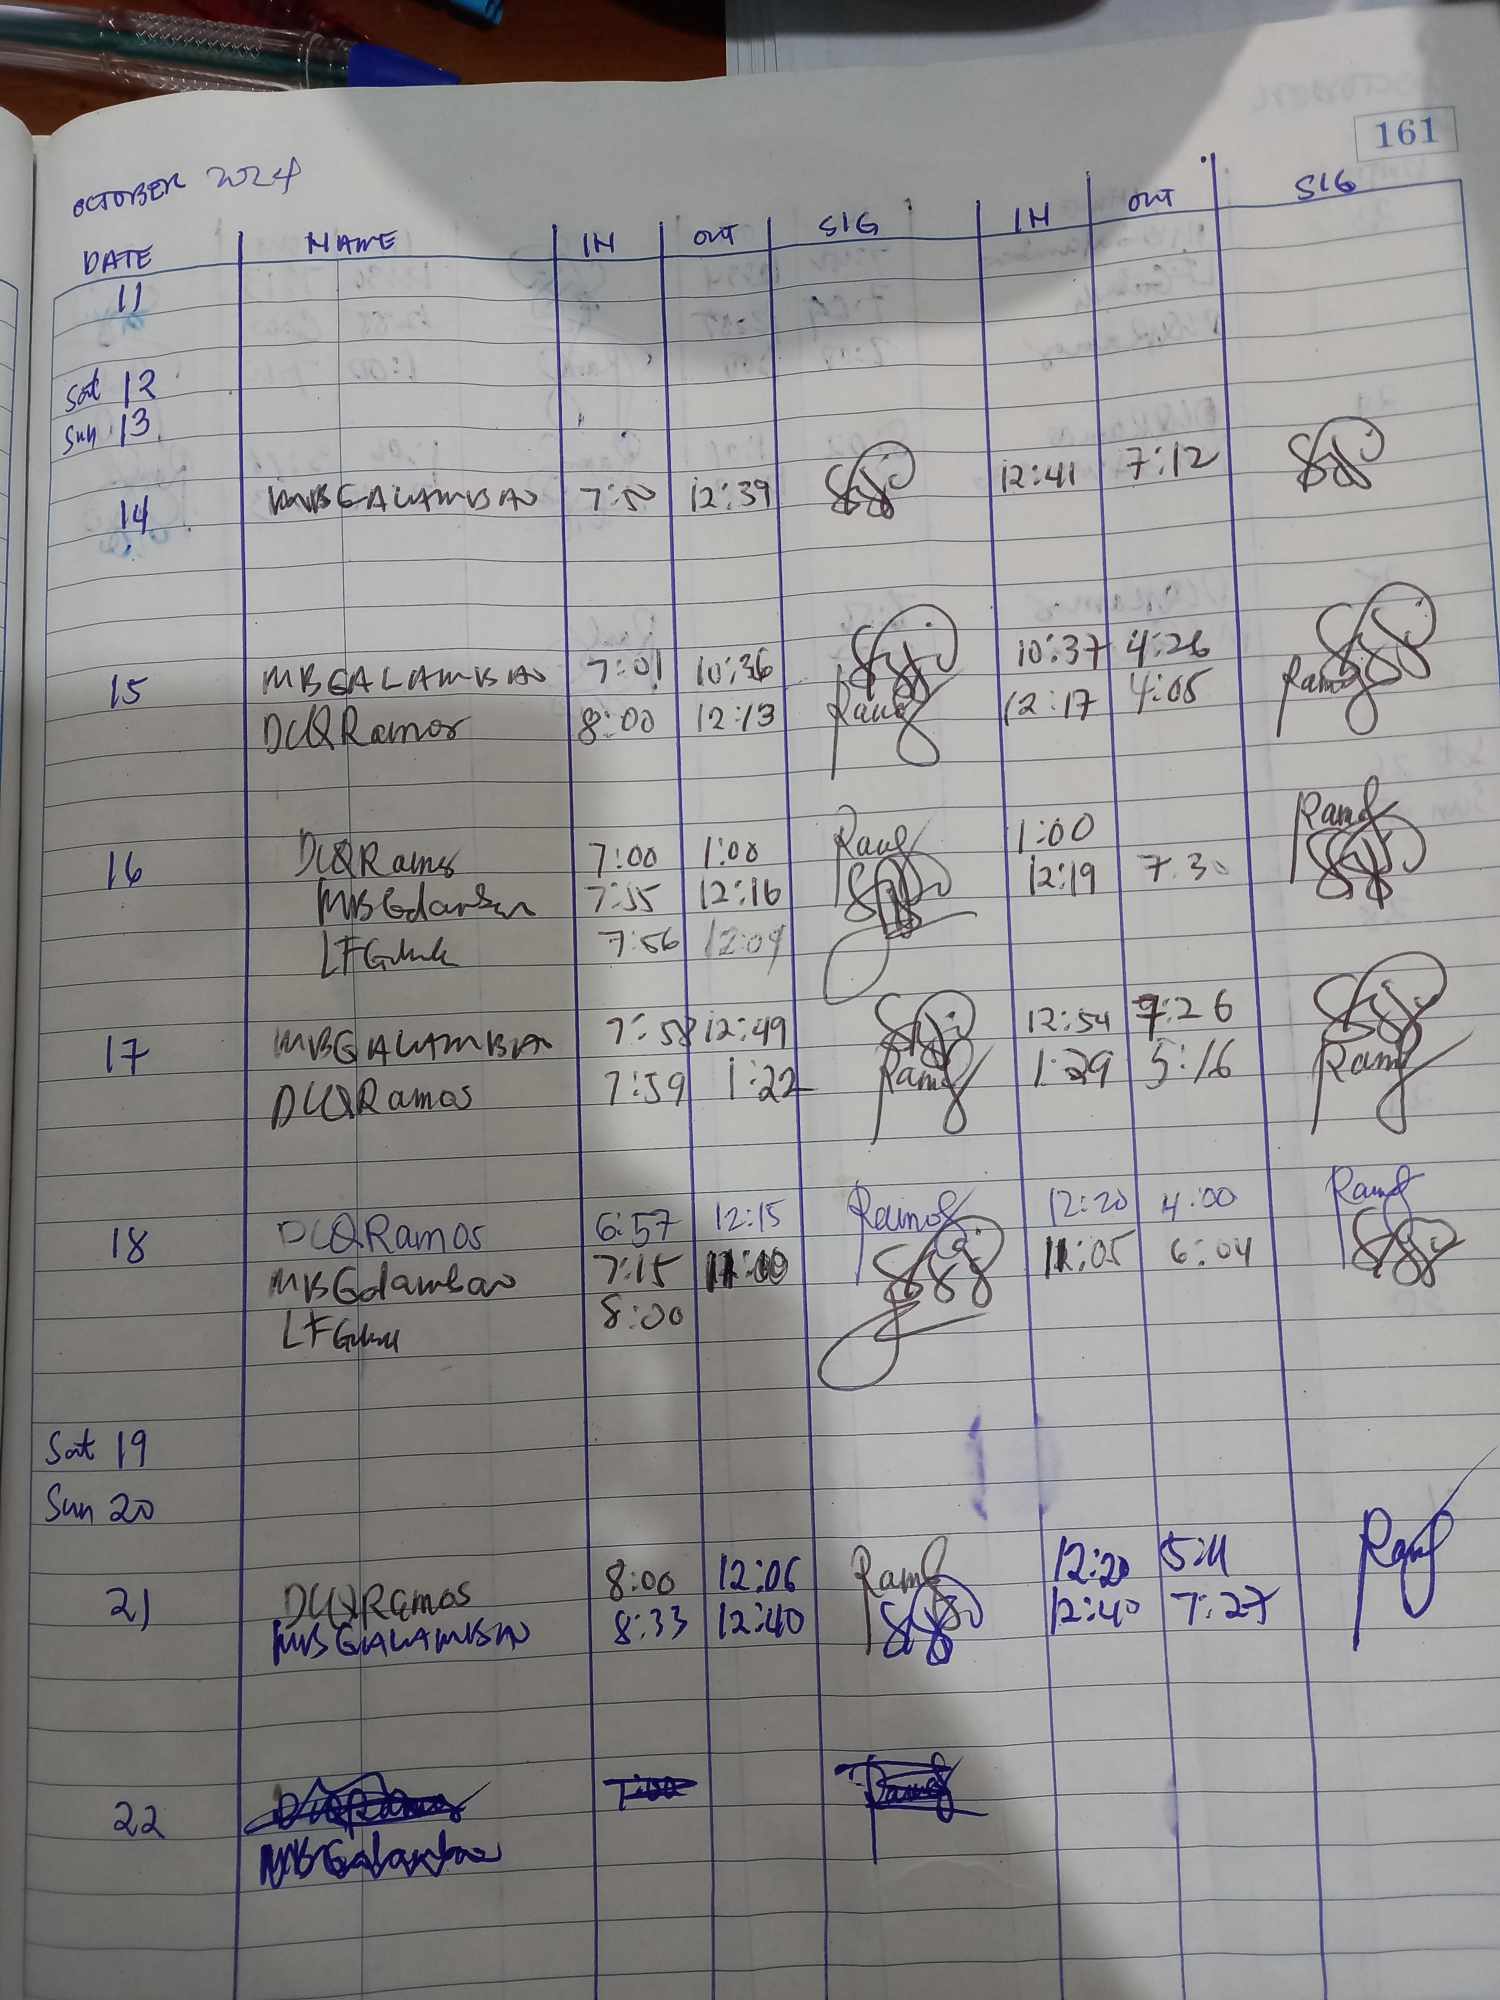 161
OCTOBER 2024
DATE NAME IN OUT SIG IN OUT SIG
11
Sat 12
Sun 13
14 MBGALAMBAO 7:50 12:39 12:41 7:12
15 MBGALAMBAO 7:01 10:36 10:37 4:26
DLQRamos 8:00 12:13 12:17 4:05
16 DLQRamos 7:00 1:00 1:00
MBGalambao 7:55 12:16 12:19 7:30
7:56 12:09
17 MBGALAMBAO 7:58 12:49 12:54 7:26
DLQRamos 7:59 1:22 Ramos 1:29 5:16 Ramos
18 DLQRamos 6:57 12:15 Ramos 12:20 4:00 Ramos
MBGalambao 7:15 11:00 11:05 6:04
8:00
Sat 19
Sun 20
21 DLQRamos 8:00 12:06 Ramos 12:20 5:11 Ramos
MBGALAMBAO 8:33 12:40 12:40 7:27
22 DLQRamos 7:00 Ramos
MBGalambao